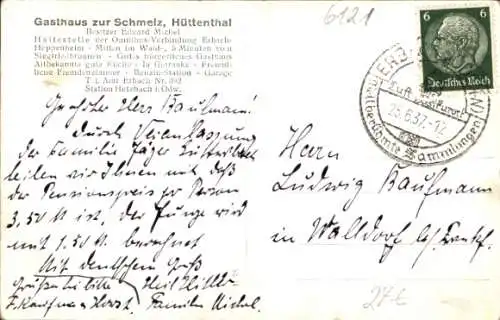 Gasthaus zur Schmelz, Hüttenthal
Besitzer Eduard Michel
Haltestelle der Omnibus-Verbindung Erbach-
Heppenheim - Mitten im Wald-, 5 Minuten vom
Siegfriedbrunnen - Gut bürgerliches Gasthaus
Altbekannte gute Küche - Ia Getränke - Freund-
liche Fremdenzimmer - Benzin-Station - Garage
T. l. Amt Erbach Nr. 392
Station Hetzbach i. Odw.
6121
6 6
Deutsches Reich
ERBACH
Luft
Kurort
25.6.37.-12
weltberühmte Sammlungen
Geehrter Herr Kaufmann!
Durch Veranlassung
der Familie Jäger
teilen wir Ihnen mit daß
der Pensionspreis per Person
3.50 M ist, der Junge wird
mit 1.50 M berechnet
Mit deutschem Gruß
Heil Hitler
Familie Michel.
Grüßen bitte
F. Kaufmann u. Horst.
Herrn
Ludwig Kaufmann
in Walldorf b/ Frankf.
27€